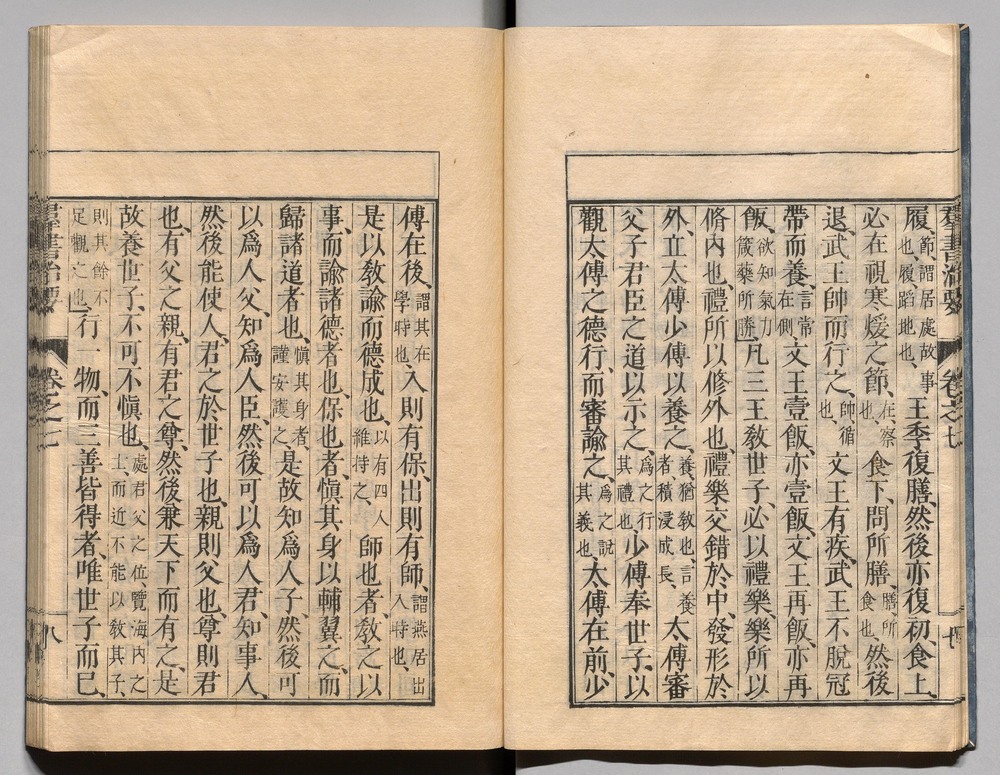 羣書治要 卷之七
履、節、謂居處故事也、履、蹈地也、王季復膳、然後亦復初、食上、
必在視寒煖之節、在、察也、食下、問所膳、膳、所食也、然後
退、武王帥而行之、帥、循也、文王有疾、武王不脫冠
帶而養、言常在側文王壹飯、亦壹飯、文王再飯、亦再
飯、欲知氣力箴藥所勝凡三王敎世子、必以禮樂、樂所以
脩內也、禮所以修外也、禮樂交錯於中、發形於
外、立太傅少傅以養之、養猶敎也、言養者積浸成長、太傅審
父子君臣之道以示之、爲之行其禮也、少傅奉世子、以
觀太傅之德行、而審諭之、爲之說其義也、太傅在前、少
傅在後、謂其在學時也、入則有保、出則有師、謂燕居出入時也、
是以敎諭而德成也、以有四人維持之、師也者、敎之以
事、而諭諸德者也、保也者、愼其身以輔翼之、而
歸諸道者也、愼其身者、謹安護之、是故知爲人子、然後可
以爲人父、知爲人臣、然後可以爲人君、知事人、
然後能使人、君之於世子也、親則父也、尊則君
也、有父之親、有君之尊、然後兼天下而有之、是
故養世子、不可不愼也、處君父之位、覽海內之士、而近不能以敎其子、
則其餘不足觀之也、行一物、而三善皆得者、唯世子而已、
羣書治要 卷之七 八